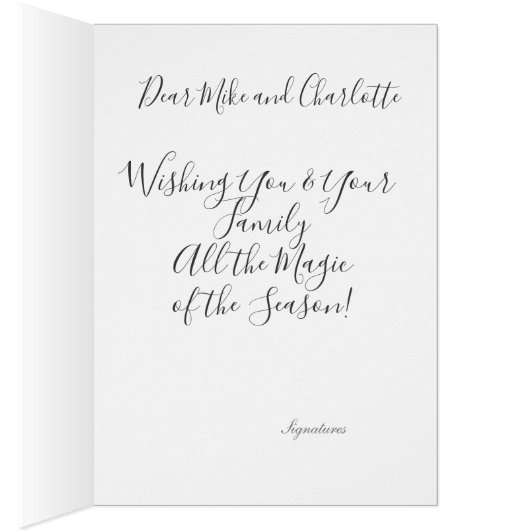 Dear Mike and Charlotte
Wishing You & Your
Family
All the Magic
of the Season!
Signatures